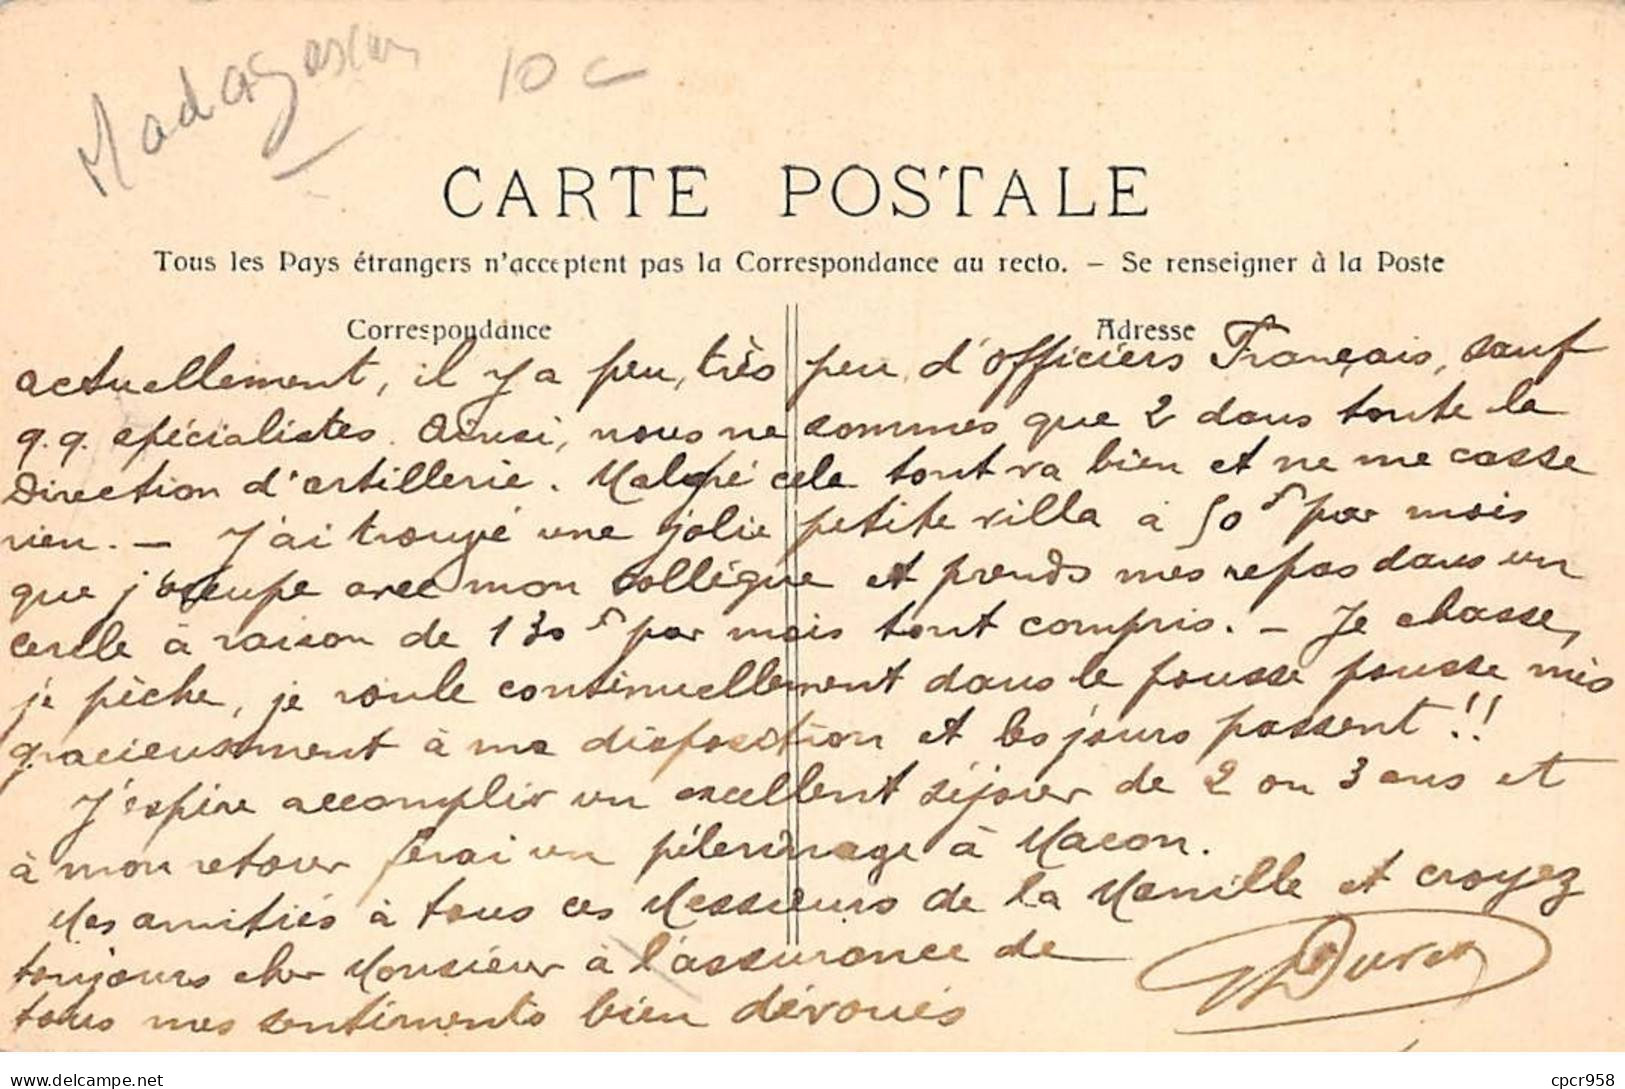 Madagascar 10 c
CARTE POSTALE
Tous les Pays étrangers n'acceptent pas la Correspondance au recto. – Se renseigner à la Poste
Correspondance
Adresse
actuellement, il y a peu, très peu, d'officiers Français, sauf
q.q. spécialistes. Ainsi, nous ne sommes que 2 dans toute la
Direction d'artillerie. Malgré cela tout va bien et ne me casse
rien. – J'ai trouvé une jolie petite villa à 50 f par mois
que j'occupe avec mon collègue et prends mes repas dans un
cercle à raison de 130 f par mois tout compris. – Je chasse,
je pèche, je roule continuellement dans le pousse pousse mis
gracieusement à ma disposition et les jours passent !!
J'espère accomplir un excellent séjour de 2 ou 3 ans et
à mon retour ferai un pélerinage à Macon.
Mes amitiés à tous ces Messieurs de la Manille et croyez
toujours cher Monsieur à l'assurance de
tous mes sentiments bien dévoués
delcampe.net
cpcr958